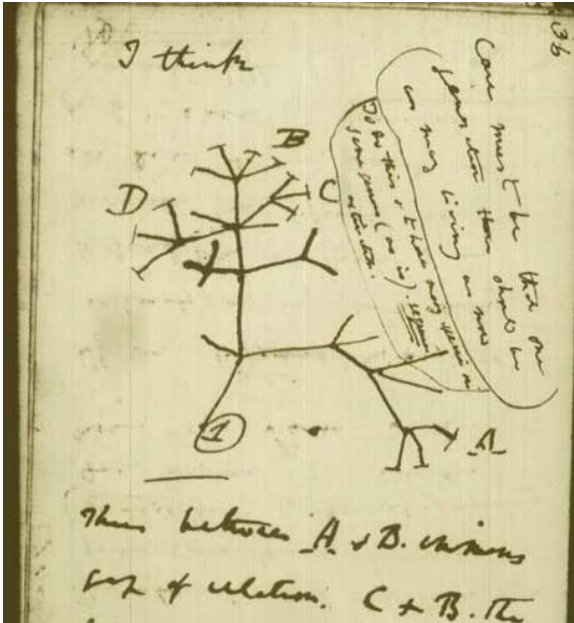 36
I think
Case must be that one
generation then should be
as many living as now
To do this & to have many species in
same genus (as is). requires
extinction.
B
C
D
A
1
Thus between A & B. immense
gap of relation. C & B. the